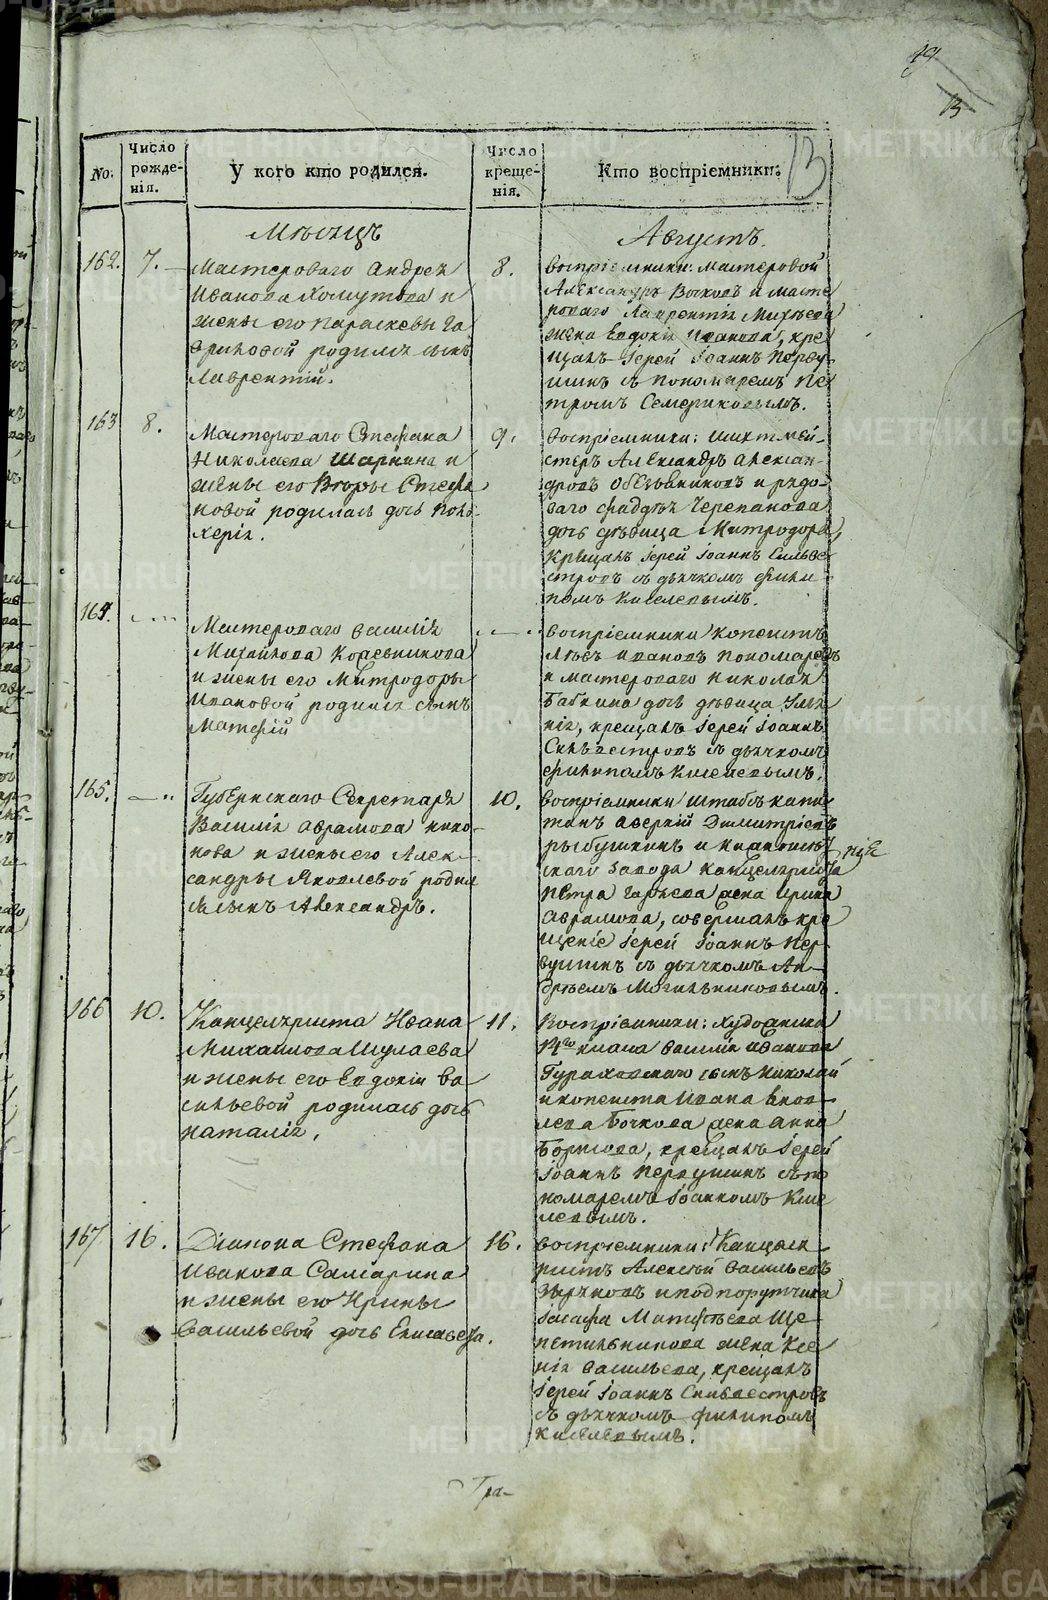 19
13
13
No.
Число рожде-
нія.
У кого кто родился.
Число креще-
нія.
Кто воспріемники:
Мѣсяцъ
Августъ.
162. 7.
Мастероваго Андрея
Иванова Хомутова и
жены его Параскевы Га
вриловой родился сынъ
Лаврентій.
8.
воспріемники: мастеровой
Александръ Волковъ и масте
роваго Лаврентія Михѣева
жена Евдокія Иванова, кре
щалъ Іерей Іоаннъ Перву-
шинъ съ пономаремъ Пе
тромъ Семериковымъ.
163 8.
Мастероваго Стефана
Николаева Шаркина и
жены его Вторы Стефа
новой родилась дочь Поль-
херія.
9.
воспріемники: шихтмей-
стеръ Александръ Алексан-
дровъ Обезьяниновъ и рядо-
ваго Фаддея Черепанова
дочь дѣвица Митродора,
Крещалъ Іерей Іоаннъ Сильве
стровъ съ дьячкомъ Фили
помъ Киселевымъ.
164.
Мастероваго Василія
Михайлова Коаевникова
и жены его Митродоры
Ивановой родился сынъ
Матфій
воспріемники копеистъ
Левъ Ивановъ Пономаревъ
и мастероваго Николая
Бабкина дочь дѣвица Ѵлья
нія, крещалъ Іерей Іоаннъ
Сильвестровъ съ дьячкомъ
Филипомъ Киселевымъ.
165.
Губернскаго Секретаря
Василія Аврамова Нико-
нова и жены его Алек-
сандры Яковлевой родил
ся сынъ Александръ.
10.
воспріемники штабсъ капи
танъ Аверкій Димитріевъ
Рыбушкинъ и
скаго завода Канцеляриста
Петра Гарѣева жена Ирина
Аврамова, совершалъ кре
щеніе Іерей Іоаннъ Пер-
вушинъ съ дьячкомъ Ан-
дреемъ Могильниковымъ.
166 10.
Канцеляриста Ивана
Михайлова Шулаева
и жены его Евдокіи Ва
сильевой родилась дочь
Наталія.
11.
Воспріемники: Художника
14го класа Василія Иванова
Гураковскаго сынъ Николай
и копеиста Ивана Яков-
лева Бочкова жена Анна
Борисова, крещалъ Іерей
Іоаннъ Первушинъ съ по
номаремъ Іоанномъ Кисе
левымъ.
167 16.
Діакона Стефана
Иванова Самарина
и жены его Ирины
Васильевой дочь Елисавета.
16.
воспріемники: Канцеля-
ристъ Алексѣй Васильевъ
Зыряновъ и подпорутчика
Іосафа Матфѣева Ще-
петильникова жена Ксе
нія Васильева, крещалъ
Іерей Іоаннъ Сильвестровъ
съ дьячкомъ Филипомъ
Киселевымъ.
Тра-
METRIKI.GASO-URAL.RU